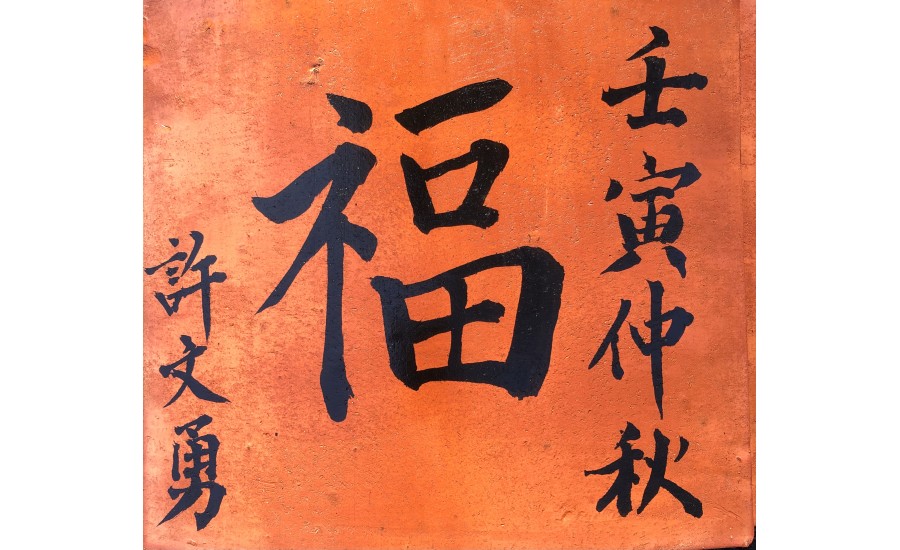 壬寅仲秋
福
許文勇